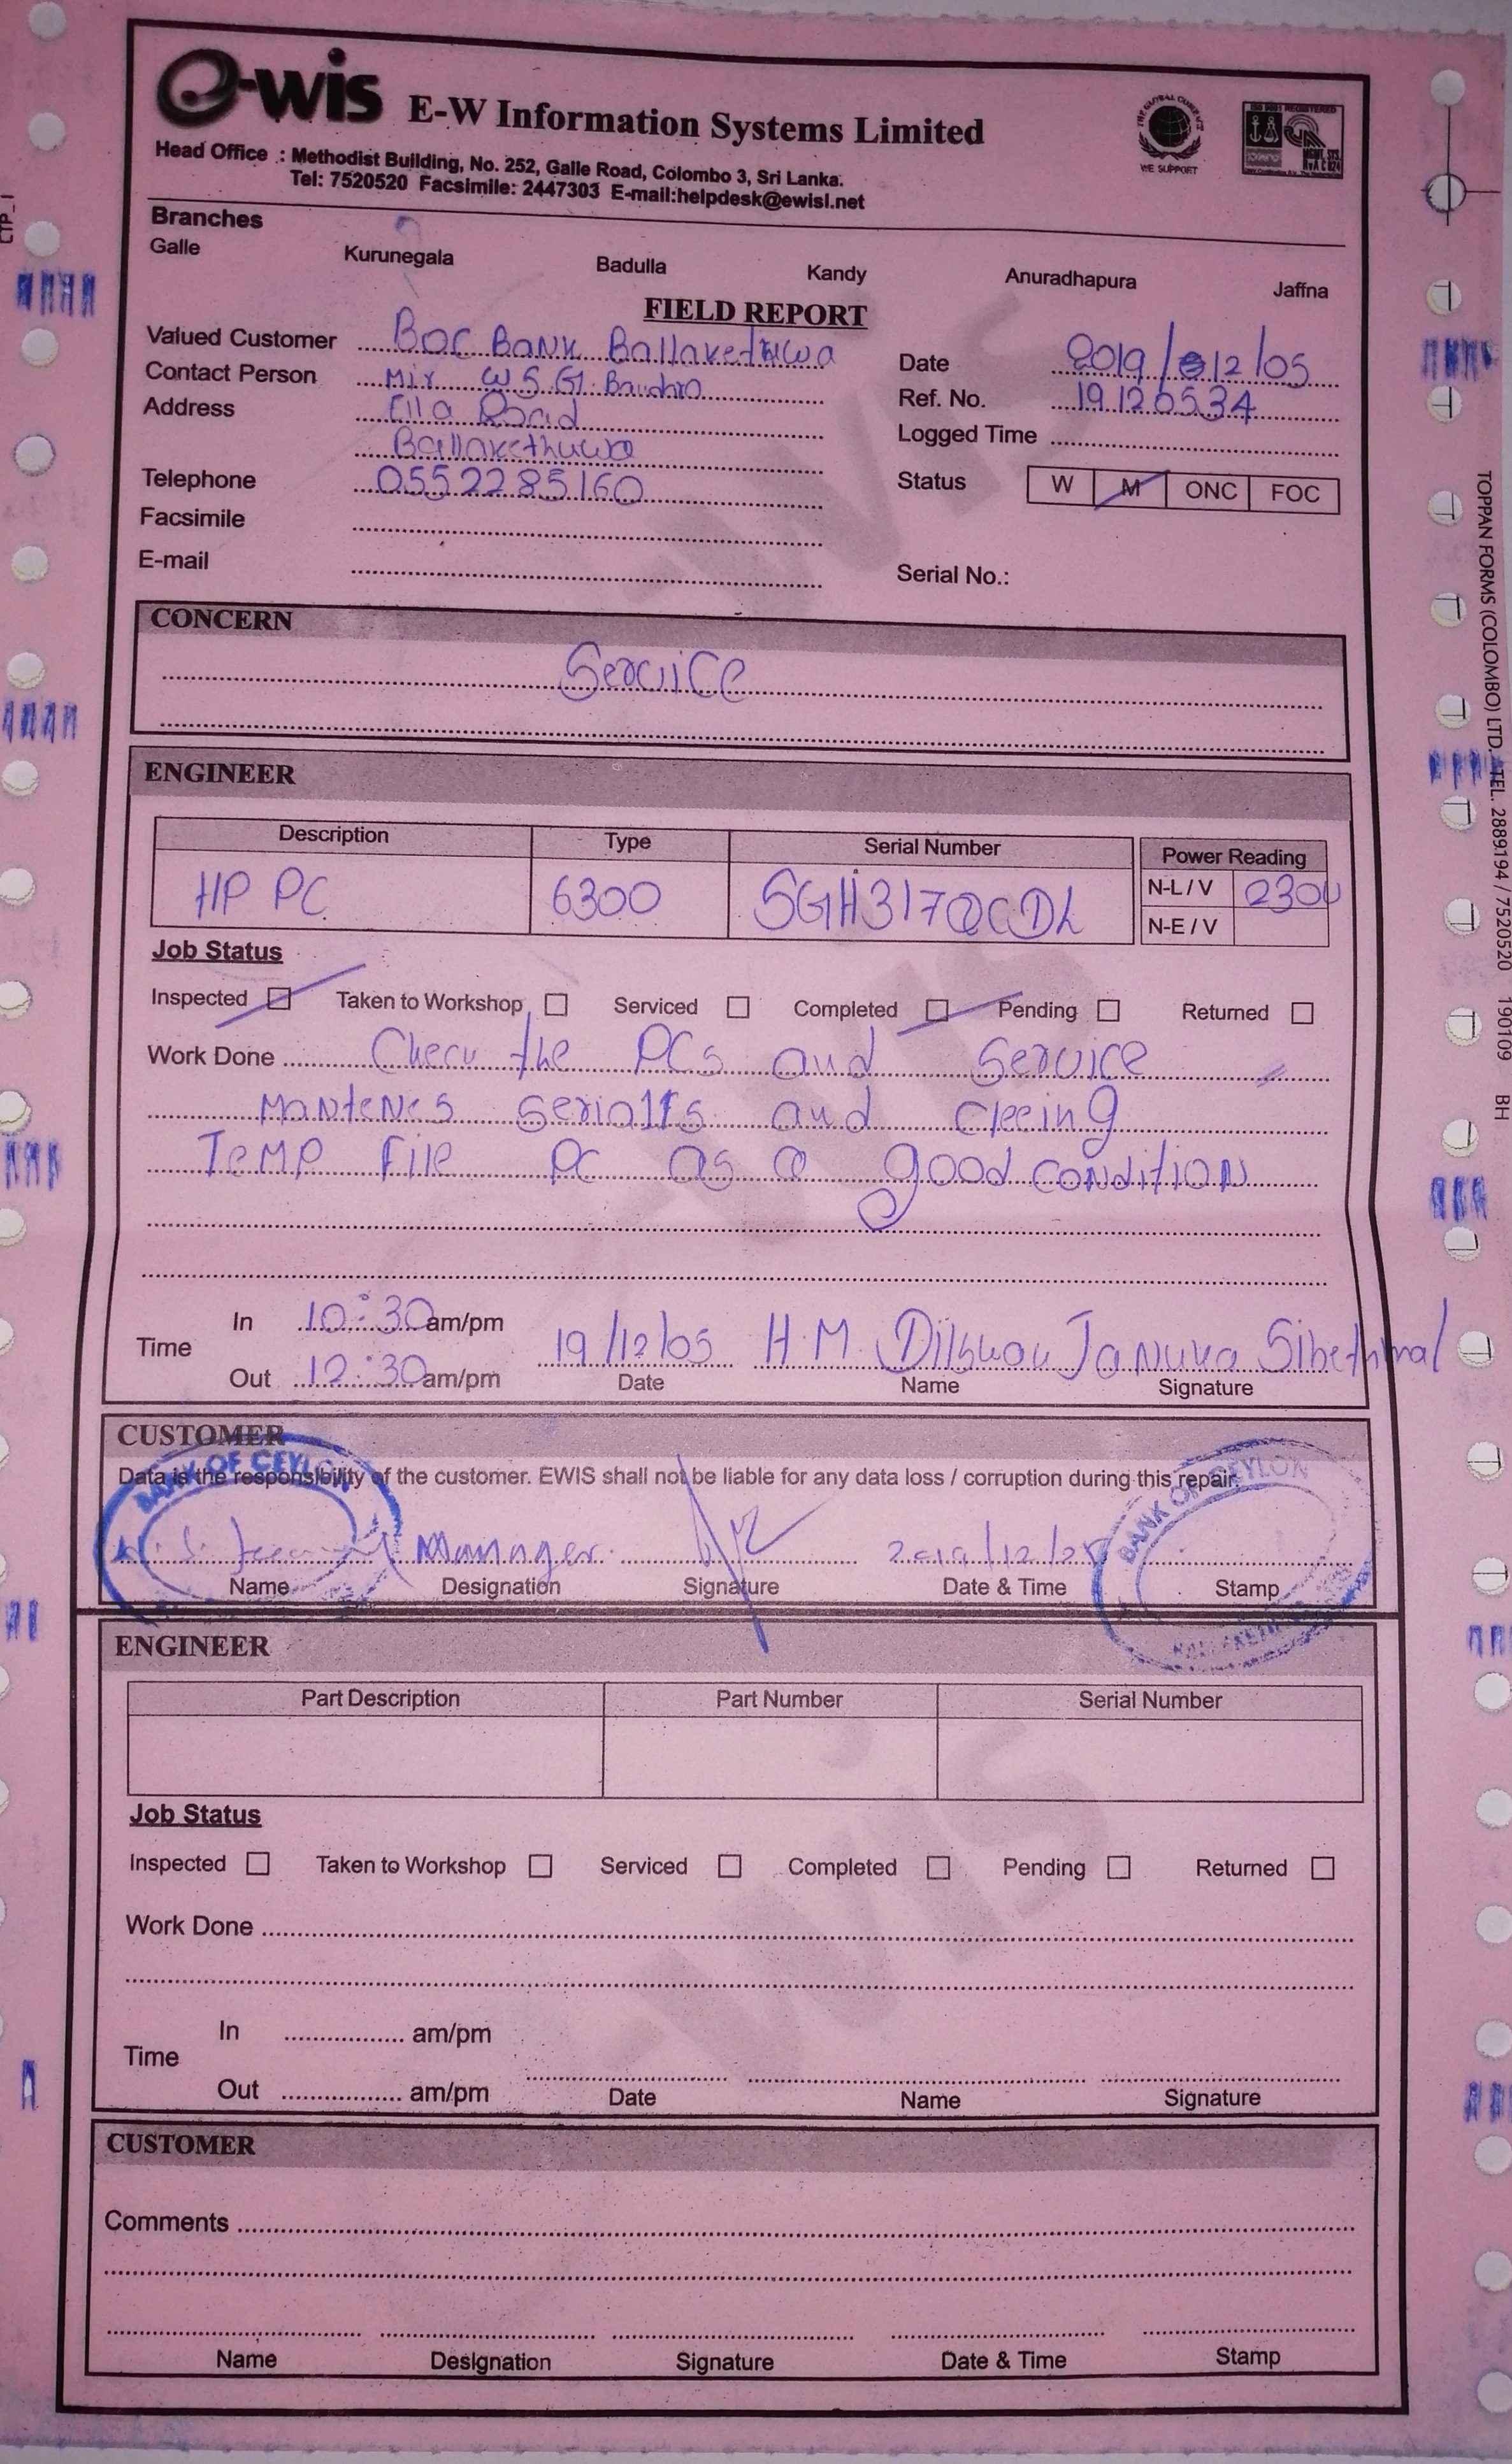 e-wis E-W Information Systems Limited
Head Office : Methodist Building, No. 252, Galle Road, Colombo 3, Sri Lanka.
Tel: 7520520 Facsimile: 2447303 E-mail:helpdesk@ewisl.net
THE GLOBAL COMPACT
WE SUPPORT
ISO 9001 REGISTERED
Branches
Galle Kurunegala Badulla Kandy Anuradhapura Jaffna
FIELD REPORT
Valued Customer BOC BANK Ballakethuwa
Date 2019/12/05
Contact Person Mr W S G.
Ref. No. 19120534
Address Ella Road
Ballakethuwa
Logged Time
Telephone 0552285160
Status W M ONC FOC
Facsimile
E-mail
Serial No.:
CONCERN
Service
ENGINEER
Description Type Serial Number Power Reading
HP PC 6300 SGH317QCDL N-L / V 230V
N-E / V
Job Status
Inspected Taken to Workshop Serviced Completed Pending Returned
Work Done Check the PCs and Service
Mantenes and cleeing
Temp File PC as a good condition
Time In 10:30 am/pm
Out 12:30 am/pm
19/12/05 H.M. Januka
Date Name Signature
CUSTOMER
Data is the responsibility of the customer. EWIS shall not be liable for any data loss / corruption during this repair.
BANK OF CEYLON
Manager
BANK OF CEYLON
Name Designation Signature Date & Time Stamp
ENGINEER
Part Description Part Number Serial Number
Job Status
Inspected Taken to Workshop Serviced Completed Pending Returned
Work Done
Time In am/pm
Out am/pm
Date Name Signature
CUSTOMER
Comments
Name Designation Signature Date & Time Stamp
TOPPAN FORMS (COLOMBO) LTD. TEL. 2889194 / 7520520 190109 BH